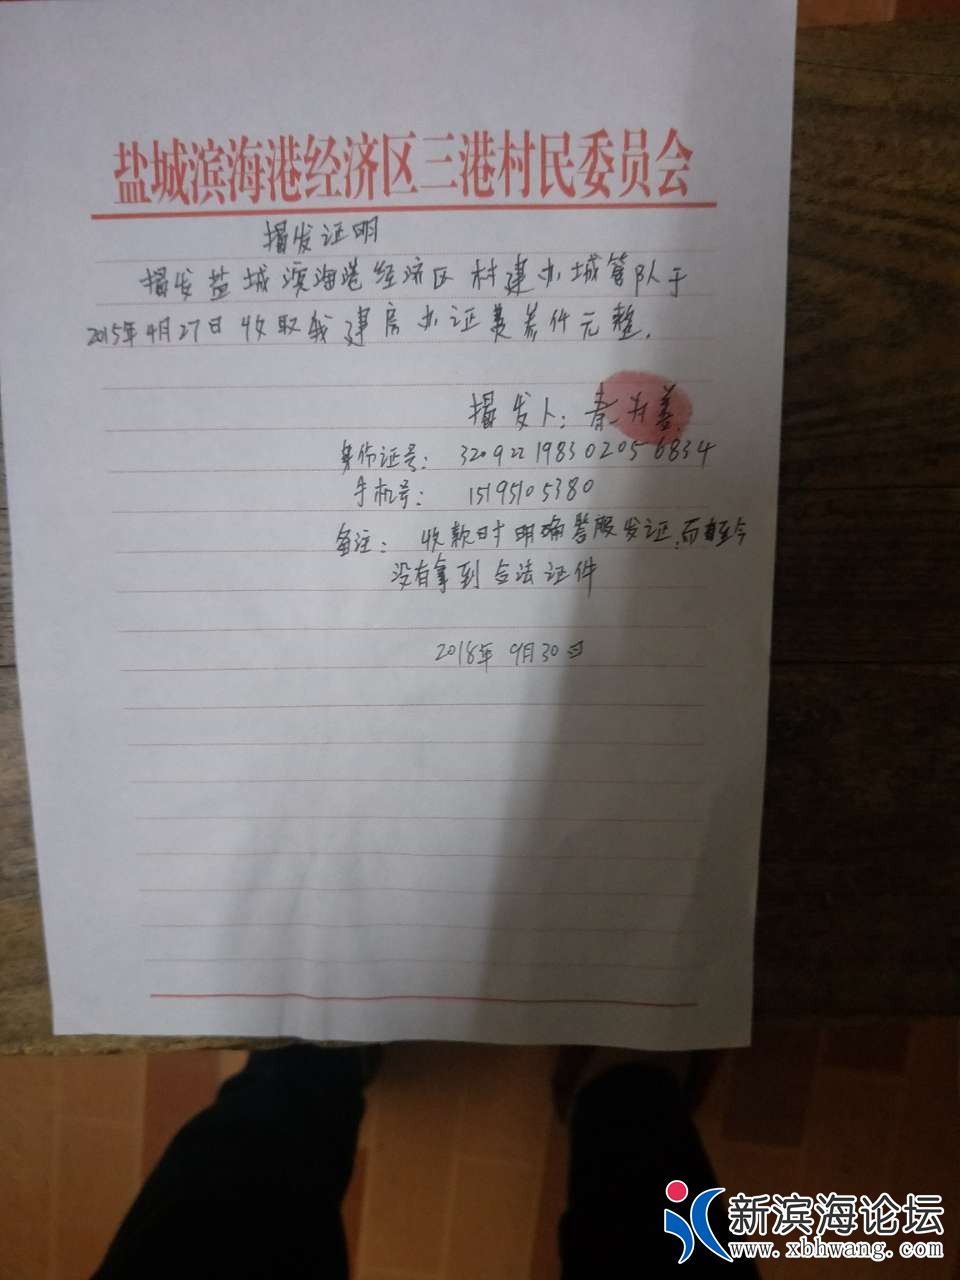 盐城滨海港经济区三港村民委员会
揭发证明
揭发盐城滨海港经济区村建办城管队于
2015年4月27日收取我建房办证费 件元整.
揭发人:
身份证号: 320922198302056834
手机号: 15195105380
备注: 收款时明确答服发证,而至今
没有拿到合法证件
2018年9月30日
新滨海论坛
www.xbhwang.com